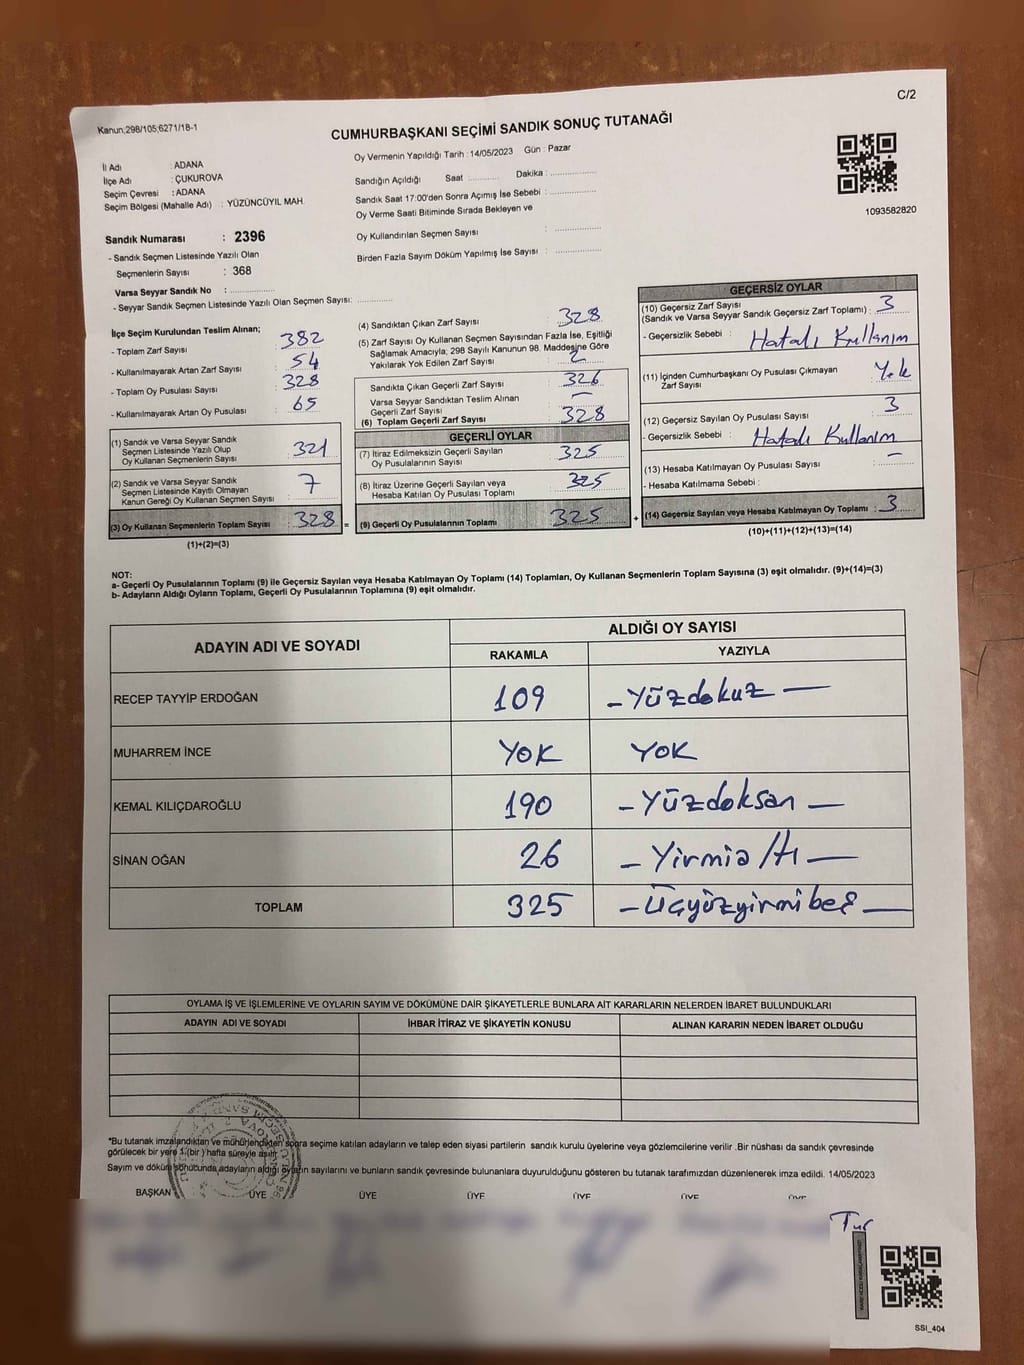 C/2
Kanun;298/105;6271/18-1
CUMHURBAŞKANI SEÇİMİ SANDIK SONUÇ TUTANAĞI
İl Adı : ADANA
İlçe Adı : ÇUKUROVA
Seçim Çevresi : ADANA
Seçim Bölgesi (Mahalle Adı) : YÜZÜNCÜYIL MAH.
Sandık Numarası : 2396
- Sandık Seçmen Listesinde Yazılı Olan
Seçmenlerin Sayısı : 368
Varsa Seyyar Sandık No :
- Seyyar Sandık Seçmen Listesinde Yazılı Olan Seçmen Sayısı:
Oy Vermenin Yapıldığı Tarih : 14/05/2023 Gün : Pazar
Sandığın Açıldığı Saat Dakika :
Sandık Saat 17:00'den Sonra Açımış İse Sebebi :
Oy Verme Saati Bitiminde Sırada Bekleyen ve
Oy Kullandırılan Seçmen Sayısı :
Birden Fazla Sayım Döküm Yapılmış İse Sayısı :
1093582820
İlçe Seçim Kurulundan Teslim Alınan;
- Toplam Zarf Sayısı : 382
- Kullanılmayarak Artan Zarf Sayısı : 54
- Toplam Oy Pusulası Sayısı : 328
- Kullanılmayarak Artan Oy Pusulası : 65
(1) Sandık ve Varsa Seyyar Sandık
Seçmen Listesinde Yazılı Olup
Oy Kullanan Seçmenlerin Sayısı : 321
(2) Sandık ve Varsa Seyyar Sandık
Seçmen Listesinde Kayıtlı Olmayan
Kanun Gereği Oy Kullanan Seçmen Sayısı : 7
(3) Oy Kullanan Seçmenlerin Toplam Sayısı : 328 =
(1)+(2)=(3)
(4) Sandıktan Çıkan Zarf Sayısı : 328
(5) Zarf Sayısı Oy Kullanan Seçmen Sayısından Fazla İse, Eşitliği
Sağlamak Amacıyla; 298 Sayılı Kanunun 98. Maddesine Göre
Yakılarak Yok Edilen Zarf Sayısı : 2
Sandıkta Çıkan Geçerli Zarf Sayısı : 326
Varsa Seyyar Sandıktan Teslim Alınan
Geçerli Zarf Sayısı : —
(6) Toplam Geçerli Zarf Sayısı : 328
GEÇERLİ OYLAR
(7) İtiraz Edilmeksizin Geçerli Sayılan
Oy Pusulalarının Sayısı : 325
(8) İtiraz Üzerine Geçerli Sayılan veya
Hesaba Katılan Oy Pusulası Toplamı : 325
(9) Geçerli Oy Pusulalarının Toplamı : 325 +
GEÇERSİZ OYLAR
(10) Geçersiz Zarf Sayısı
(Sandık ve Varsa Seyyar Sandık Geçersiz Zarf Toplamı) : 3
- Geçersizlik Sebebi : Hatalı Kullanım
(11) İçinden Cumhurbaşkanı Oy Pusulası Çıkmayan
Zarf Sayısı : Yok
(12) Geçersiz Sayılan Oy Pusulası Sayısı : 3
- Geçersizlik Sebebi : Hatalı Kullanım
(13) Hesaba Katılmayan Oy Pusulası Sayısı : —
- Hesaba Katılmama Sebebi :
(14) Geçersiz Sayılan veya Hesaba Katılmayan Oy Toplamı : 3
(10)+(11)+(12)+(13)=(14)
NOT:
a- Geçerli Oy Pusulalarının Toplamı (9) ile Geçersiz Sayılan veya Hesaba Katılmayan Oy Toplamı (14) Toplamları, Oy Kullanan Seçmenlerin Toplam Sayısına (3) eşit olmalıdır. (9)+(14)=(3)
b- Adayların Aldığı Oyların Toplamı, Geçerli Oy Pusulalarının Toplamına (9) eşit olmalıdır.
ADAYIN ADI VE SOYADI ALDIĞI OY SAYISI
RAKAMLA YAZIYLA
RECEP TAYYİP ERDOĞAN 109 - Yüzdokuz —
MUHARREM İNCE YOK YOK
KEMAL KILIÇDAROĞLU 190 - Yüzdoksan —
SİNAN OĞAN 26 - Yirmialtı —
TOPLAM 325 - Üçyüzyirmibeş —
OYLAMA İŞ VE İŞLEMLERİNE VE OYLARIN SAYIM VE DÖKÜMÜNE DAİR ŞİKAYETLERLE BUNLARA AİT KARARLARIN NELERDEN İBARET BULUNDUKLARI
ADAYIN ADI VE SOYADI İHBAR İTİRAZ VE ŞİKAYETİN KONUSU ALINAN KARARIN NEDEN İBARET OLDUĞU
*Bu tutanak imzalandıktan ve mühürlendikten sonra seçime katılan adayların ve talep eden siyasi partilerin sandık kurulu üyelerine veya gözlemcilerine verilir .Bir nüshası da sandık çevresinde
görülecek bir yere 1 (bir ) hafta süreyle asılır.
Sayım ve döküm sonucunda,adayların aldığı oyların sayılarını ve bunların sandık çevresinde bulunanlara duyurulduğunu gösteren bu tutanak tarafımızdan düzenlenerek imza edildi. 14/05/2023
BAŞKAN ÜYE ÜYE ÜYE ÜYE ÜYE ÜYE
SSI_404